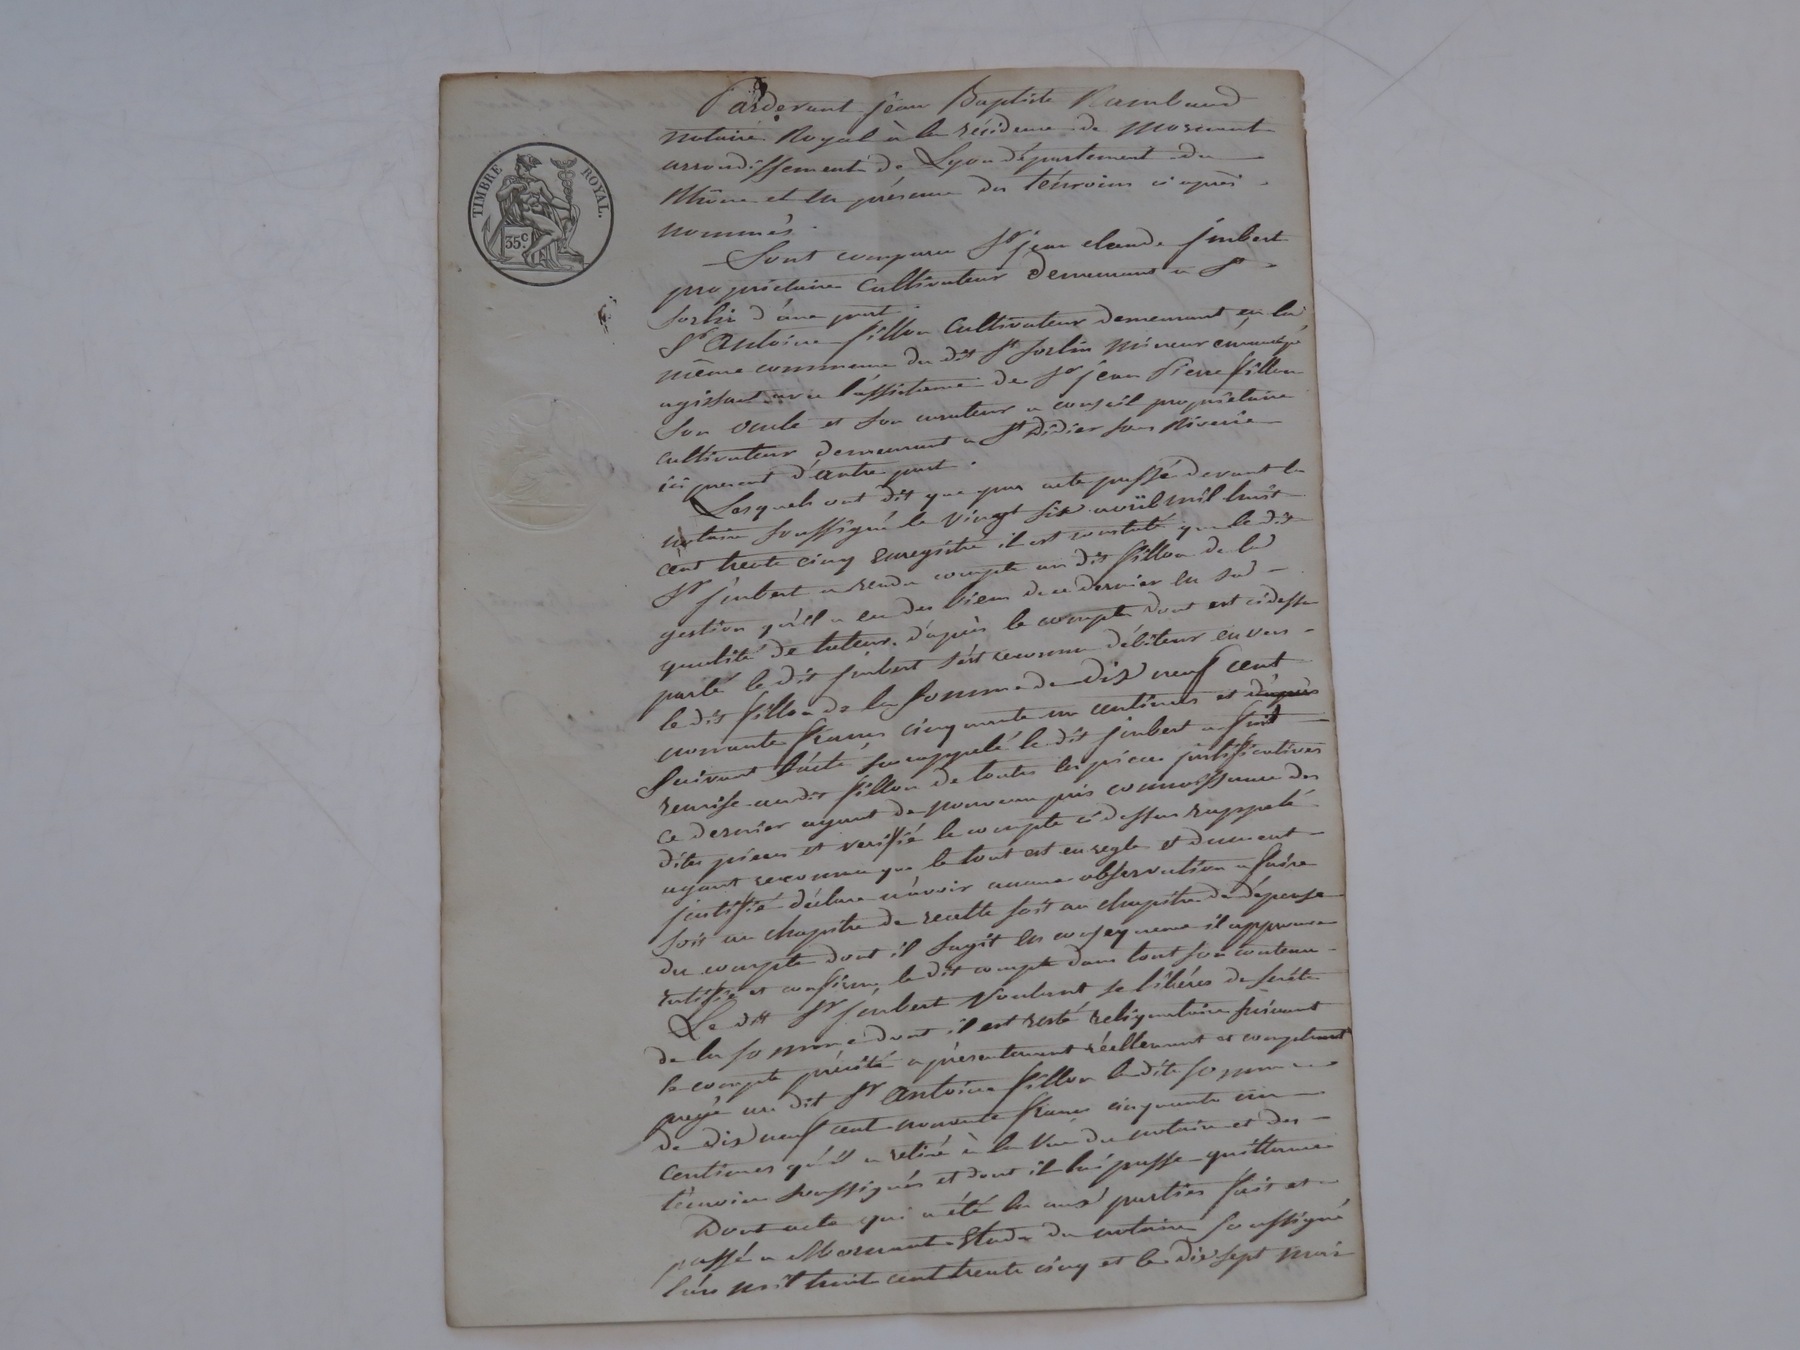 TIMBRE ROYAL.
35c
Pardevant jean Baptiste Rambaud
notaire Royal à la résidence de Mornant
arrondissement de Lyon département du
Rhône et en présence des témoins ci après
nommés.
Sont comparu Sr jean claude jimbert
propriétaire Cultivateur demeurant a St
Sorlin d'une part
Sr Antoine fillon Cultivateur demeurant en la
même commune du dit St Sorlin Mineur émancipé
agissant avec l'assistance de Sr jean Pierre fillon
son oncle et son curateur a conseil propriétaire
cultivateur demeurant a St Didier sous Riverie
ici present d'autre part.
Lesquels ont dit que par acte passé devant le
notaire soussigné le vingt six avril mil huit
cent trente cinq enregistré il est constaté que le dit
Sr jimbert a rendu compte au dit fillon de la
gestion qu'il a eu des biens de ce dernier en sa
qualité de tuteur, d'après le compte dont est cidessus
parlé le dit jimbert s'est reconnu débiteur envers
le dit fillon de la somme de dix neuf cent
nonante francs cinquante un centimes et d'après
Suivant l'acte susrappelé le dit jimbert a fait
remise au dit fillon de toutes les pièces justificatives
ce dernier ayant de nouveau pris connoissance des
dites pièces et verifié le compte ci dessus rappelé
ayant reconnu que le tout est en regle et dument
justifié déclare n'avoir aucune observation a faire
soit au chapitre de recette soit au chapitre de dépense
du compte dont il sagit en conséquence il approuve
ratifie et confirme le dit compte dans tout son contenu
Le dit Sr jimbert voulant se libérer de suite
de la somme dont il est resté reliquataire suivant
le compte précité a présentement réellement et comptant
payé au dit Sr Antoine fillon la dite somme
de dix neuf cent nonante francs cinquante un
centimes qu'il a retiré à la vue du notaire et des
témoins soussignés et dont il lui passe quittance
Dont acte qui a été lu aux parties fait et
passé a Mornant Etude du notaire soussigné
l'an mil huit cent trente cinq et le dix sept mai